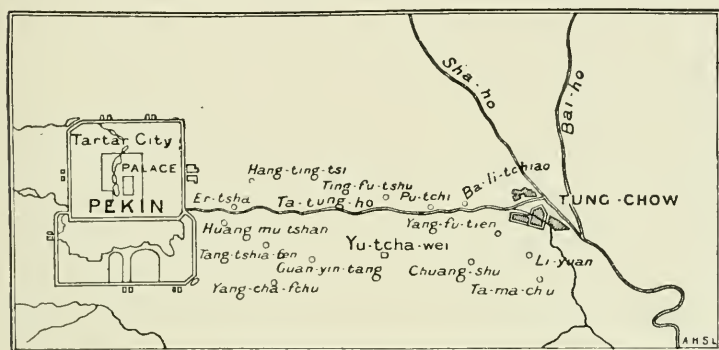 Sha-ho
Bai-ho
Tartar City
PALACE
PEKIN
Hang-ting-tsi
Ting-fu-tshu
Ba-li-tchiao
TUNG-CHOW
Er-tsha
Ta-tung-ho
Pu-tchi
Huang mu tshan
Yang-fu-tien
Yu-tcha-wei
Tang-tshia-fen
Guan-yin-tang
Chuang-shu
Li-yuan
Yang-cha-fchu
Ta-ma-chu
AHSL